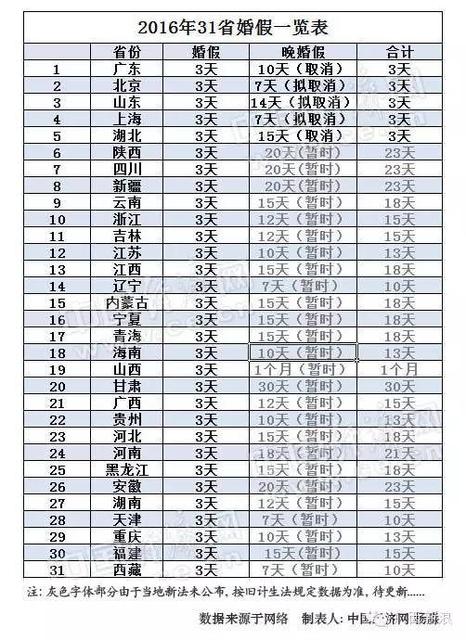 2016年31省婚假一览表
省份 婚假 晚婚假 合计
1 广东 3天 10天（取消） 3天
2 北京 3天 7天（拟取消） 3天
3 山东 3天 14天（拟取消） 3天
4 上海 3天 7天（拟取消） 3天
5 湖北 3天 15天（取消） 3天
6 陕西 3天 20天（暂时） 23天
7 四川 3天 20天（暂时） 23天
8 新疆 3天 20天（暂时） 23天
9 云南 3天 15天（暂时） 18天
10 浙江 3天 12天（暂时） 15天
11 吉林 3天 12天（暂时） 15天
12 江苏 3天 10天（暂时） 13天
13 江西 3天 15天（暂时） 18天
14 辽宁 3天 7天（暂时） 10天
15 内蒙古 3天 15天（暂时） 18天
16 宁夏 3天 15天（暂时） 18天
17 青海 3天 15天（暂时） 18天
18 海南 3天 10天（暂时） 13天
19 山西 3天 1个月（暂时） 1个月
20 甘肃 3天 30天（暂时） 30天
21 广西 3天 12天（暂时） 15天
22 贵州 3天 10天（暂时） 13天
23 河北 3天 15天（暂时） 18天
24 河南 3天 18天（暂时） 21天
25 黑龙江 3天 15天（暂时） 18天
26 安徽 3天 20天（暂时） 23天
27 湖南 3天 12天（暂时） 15天
28 天津 3天 7天（暂时） 10天
29 重庆 3天 10天（暂时） 13天
30 福建 3天 15天（暂时） 15天
31 西藏 3天 7天（暂时） 10天
注：灰色字体部分由于当地新法未公布，按旧计生法规定数据为准，待更新......
数据来源于网络 制表人：中国 济网